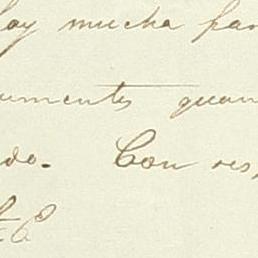 hay mucha
umentos guan
do. Con res